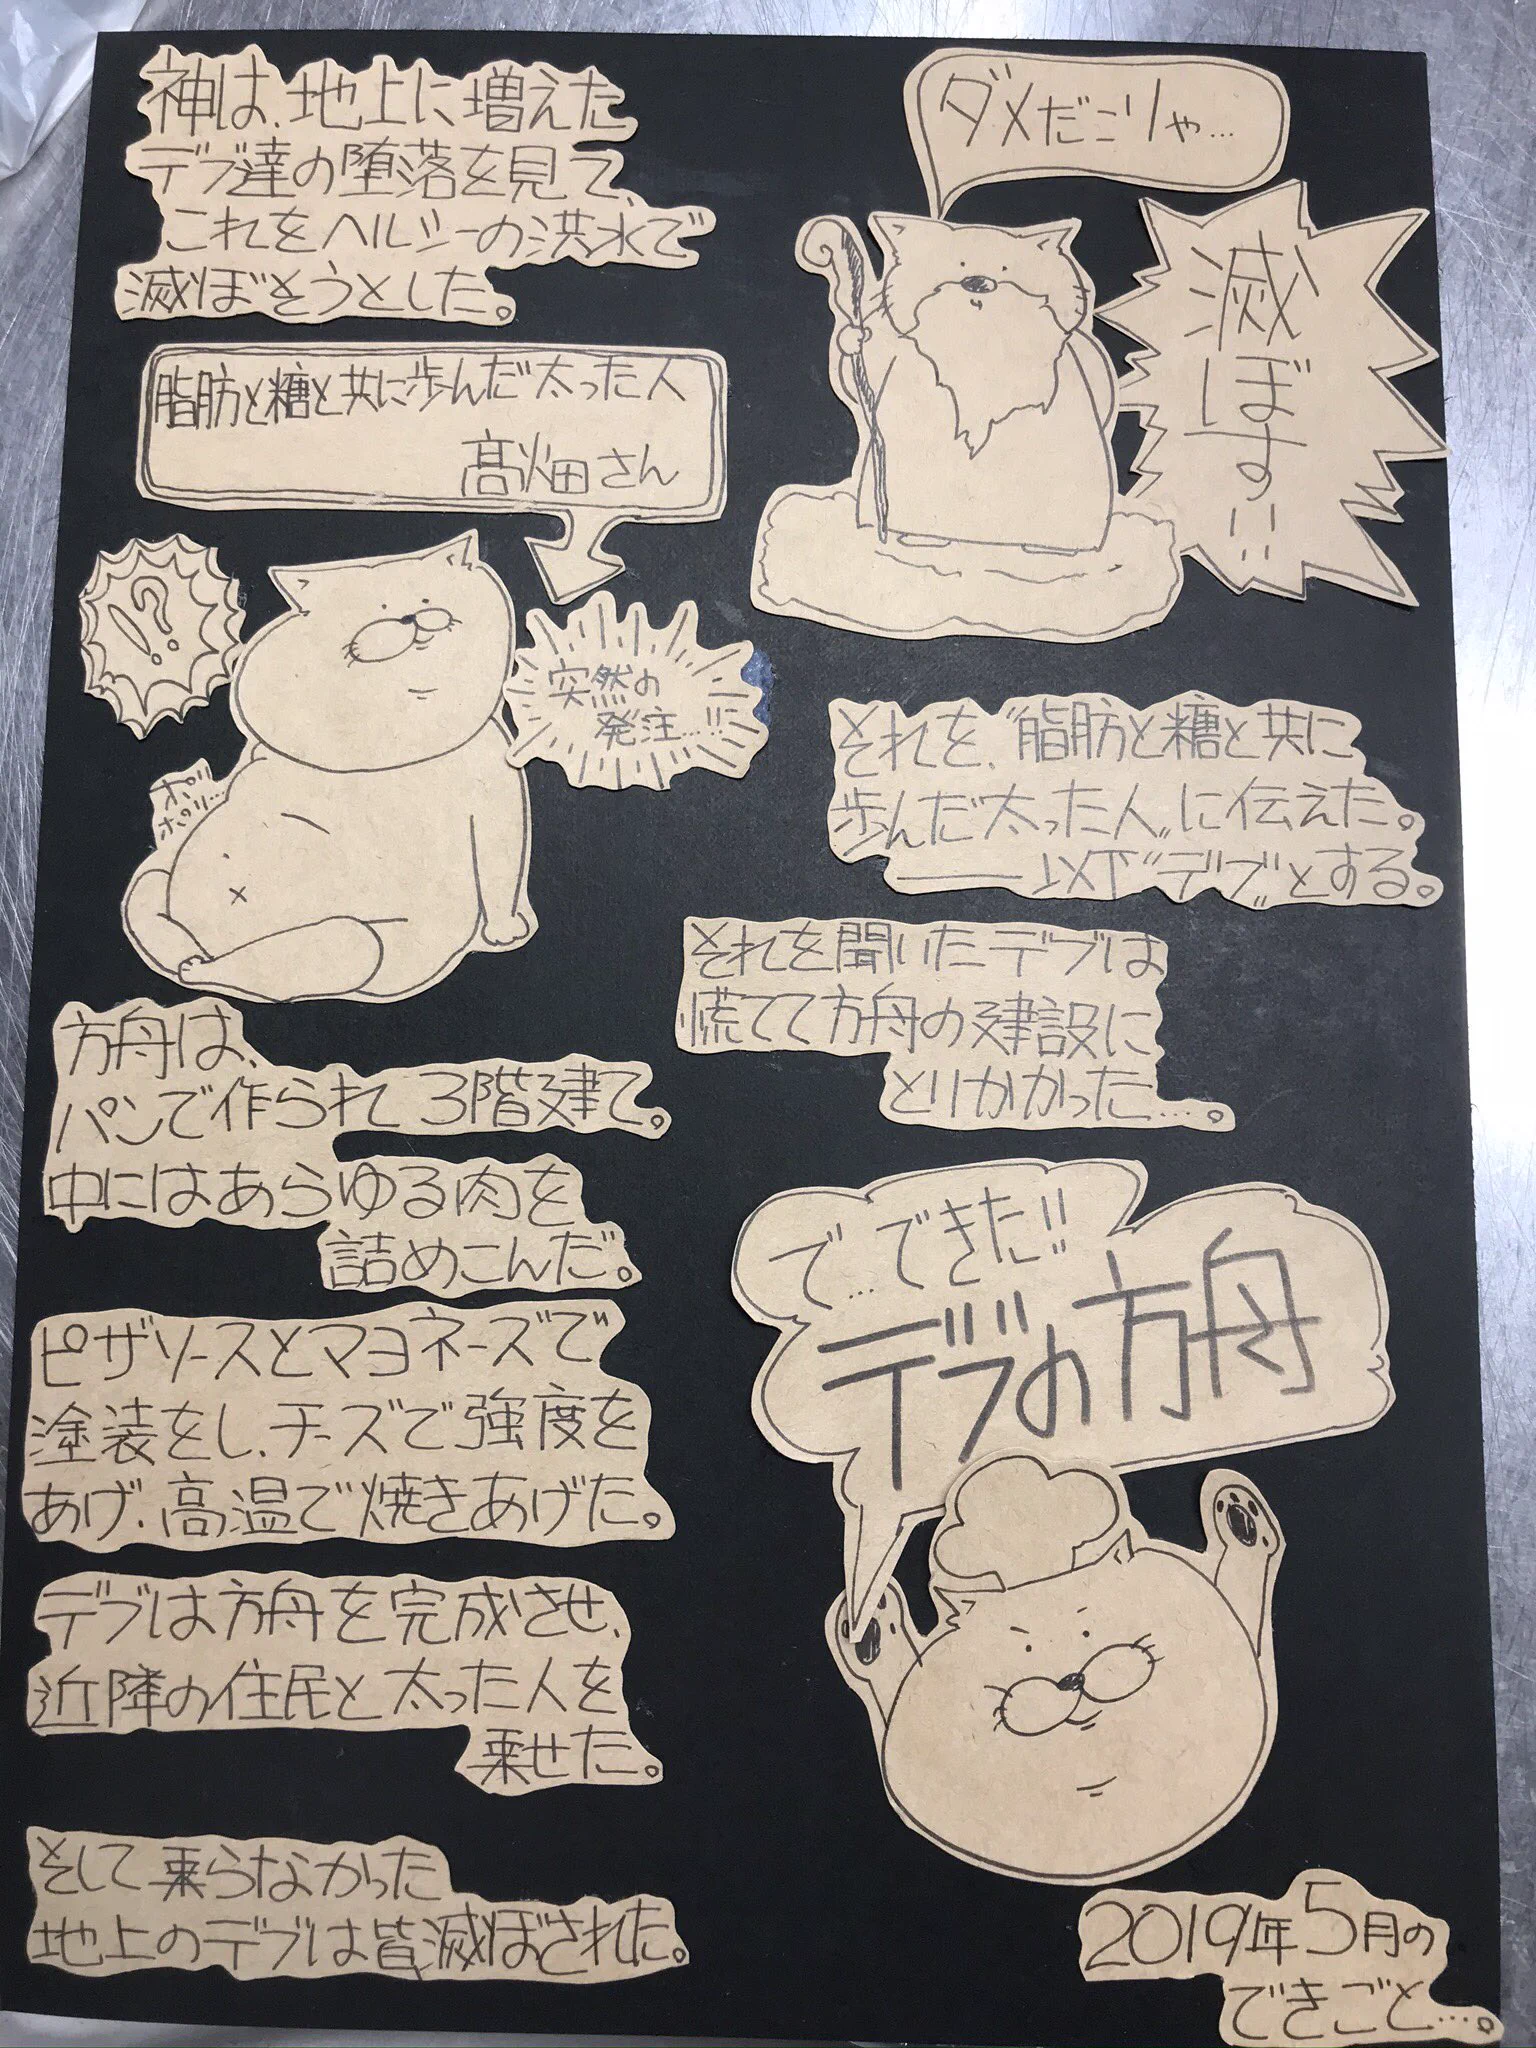 神は、地上に増えた
デブ達の堕落を見て、
これをヘルシーの洪水で
滅ぼそうとした。
ダメだこりゃ…
滅ぼす!!
脂肪と糖と共に歩んだ太った人
髙畑さん
!?
突然の
発注…!!
ポリ
ポリ…
それを、“脂肪と糖と共に
歩んだ太った人”に伝えた。
――以下“デブ”とする。
それを聞いたデブは
慌てて方舟の建設に
とりかかった…。
方舟は、
パンで作られ3階建て。
中にはあらゆる肉を
詰めこんだ。
ピザソースとマヨネーズで
塗装をし、チーズで強度を
あげ、高温で焼きあげた。
で…できた!!
デブの方舟
デブは方舟を完成させ、
近隣の住民と太った人を
乗せた。
そして乗らなかった
地上のデブは皆滅ぼされた。
2019年5月の
できごと…。